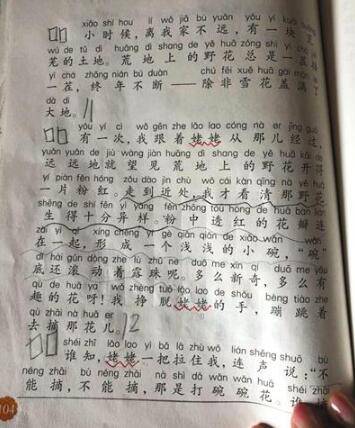 xiǎo shí hou lí wǒ jiā bù yuǎn yǒu yí kuài
小时候，离我家不远，有一块
wú de tǔ dì huāng dì shang de yě huā zǒng shì yì chá
芜的土地。荒地上的野花总是一茬
yì chá zhōng nián bú duàn chú fēi xuě huā gài mǎn
一茬，终年不断——除非雪花盖满
dà dì
大地。11
yǒu yí cì wǒ gēn zhe lǎo lao cóng nà er jīng guò
有一次，我跟着姥姥从那儿经过，
yuǎn yuǎn de jiù wàng jiàn huāng dì shang de yě huā kāi de
远远地就望见荒地上的野花开得
yí piàn fěn hóng zǒu dào jìn chù wǒ cái kàn qīng nà yě huā
一片粉红。走到近处，我才看清那野花
shēng de shí fēn yì yàng fěn zhōng tòu hóng de huā bàn lián
生得十分异样。粉中透红的花瓣连
zài yì qǐ xíng chéng yí gè qiǎn qiǎn de xiǎo wǎn wǎn
在一起，形成一个浅浅的小碗，“碗”
dǐ hái gǔn dòng zhe lù zhū ne duō me xīn qí duō me yǒu
底还滚动着露珠呢。多么新奇，多么有
qù de huā ya wǒ zhèng tuō lǎo lao de shǒu bèng tiào zhe
趣的花呀！我挣脱姥姥的手，蹦跳着
qù zhāi nà huā er
去摘那花儿。12
shéi zhī lǎo lao yì bǎ lā zhù wǒ lián shēng shuō bù
谁知，姥姥一把拉住我，连声说：“不
néng zhāi bù néng zhāi nà shì dǎ wǎn wǎn huā shéi
能摘，不能摘，那是打碗碗花。谁
104